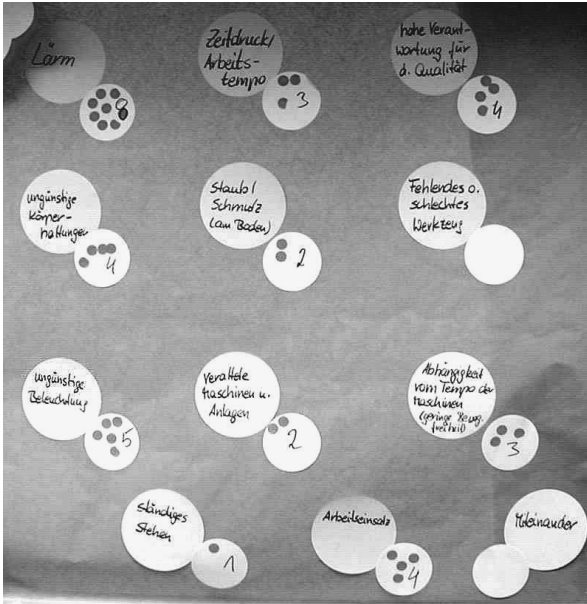 Lärm
8
Zeitdruck/
Arbeits-
tempo
3
hohe Verant-
wortung für
d. Qualität
4
ungünstige
Körper-
haltungen
4
Staub/
Schmutz
(am Boden)
2
Fehlendes o.
schlechtes
Werkzeug
ungünstige
Beleuchtung
5
Veraltete
Maschinen u.
Anlagen
2
Abhängigkeit
vom Tempo der
Maschinen
(geringe Beweg.
freiheit)
3
ständiges
Stehen
1
Arbeitseinsatz
4
Miteinander